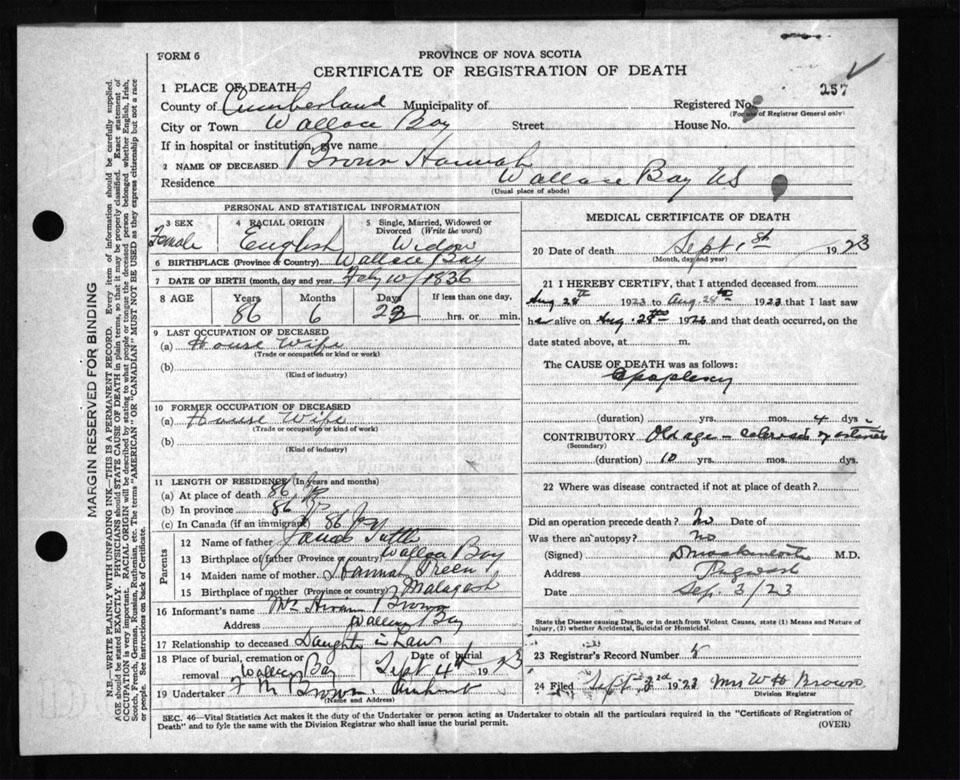 FORM 6
PROVINCE OF NOVA SCOTIA
CERTIFICATE OF REGISTRATION OF DEATH
257
1 PLACE OF DEATH
County of Cumberland Municipality of Registered No.
(For use of Registrar General only)
City or Town Wallace Bay Street House No.
If in hospital or institution, give name
2 NAME OF DECEASED Brown Hannah
Residence Wallace Bay NS
(Usual place of abode)
MARGIN RESERVED FOR BINDING
N.B.—WRITE PLAINLY WITH UNFADING INK—THIS IS A PERMANENT RECORD. Every item of information should be carefully supplied.
AGE should be stated EXACTLY. PHYSICIANS should STATE CAUSE OF DEATH in plain terms, so that it may be properly classified. Exact statement of
OCCUPATION is very important. RACIAL ORIGIN will be described by stating to what people or tongue the deceased person belonged whether English, Irish,
Scotch, French, German, Russian, Ruthenian, etc. The terms "AMERICAN" OR "CANADIAN" MUST NOT BE USED as they express citizenship but not a race
or people. See instructions on back of Certificate.
PERSONAL AND STATISTICAL INFORMATION
3 SEX 4 RACIAL ORIGIN 5 Single, Married, Widowed or
Divorced (Write the word)
Female English Widow
6 BIRTHPLACE (Province or Country) Wallace Bay
7 DATE OF BIRTH (month, day and year) Feby 10/1836
8 AGE Years Months Days If less than one day,
86 6 22 hrs. or min.
9 LAST OCCUPATION OF DECEASED
(a) House Wife
(Trade or occupation or kind or work)
(b)
(Kind of industry)
10 FORMER OCCUPATION OF DECEASED
(a) House Wife
(Trade or occupation or kind of work)
(b)
(Kind of industry)
11 LENGTH OF RESIDENCE (In years and months)
(a) At place of death 86
(b) In province 86
(c) In Canada (if an immigrant) 86
Parents
12 Name of father Tuttle
13 Birthplace of father (Province or country) Wallace Bay
14 Maiden name of mother Hannah Treen
15 Birthplace of mother (Province or country) Malagash
16 Informant's name Mrs Hiram Brown
Address Wallace Bay
17 Relationship to deceased Daughter in Law
18 Place of burial, cremation or Date of burial
removal Wallace Bay Sept 4th 1923
19 Undertaker Brown Amherst
(Name and Address)
MEDICAL CERTIFICATE OF DEATH
20 Date of death Sept 1st 1923
(Month, day and year)
21 I HEREBY CERTIFY, that I attended deceased from
Aug 28th 1923 to Aug. 28th 1923 that I last saw
her alive on Aug. 28th 1923 and that death occurred, on the
date stated above, at m.
The CAUSE OF DEATH was as follows:
Apoplexy
(duration) yrs. mos. 4 dys
CONTRIBUTORY Old age
(Secondary)
(duration) 10 yrs. mos. dys.
22 Where was disease contracted if not at place of death?
Did an operation precede death? No Date of
Was there an autopsy? No
(Signed) M.D.
Address Pugwash
Date Sep. 3/23
State the Disease causing Death, or in death from Violent Causes, state (1) Means and Nature of
Injury, (2) whether Accidental, Suicidal or Homicidal.
23 Registrar's Record Number
24 Filed Sept 3rd 1923 Mrs W H Brown
Division Registrar
SEC. 46—Vital Statistics Act makes it the duty of the Undertaker or person acting as Undertaker to obtain all the particulars required in the "Certificate of Registration of
Death" and to fyle the same with the Division Registrar who shall issue the burial permit.
(OVER)